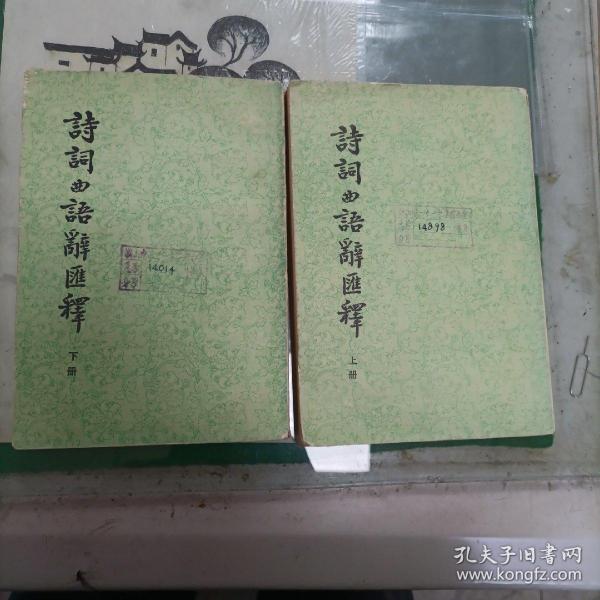 詩詞曲語辭匯釋
下册
14014
詩詞曲語辭匯釋
上册
14898
孔夫子旧书网
www.kongfz.com